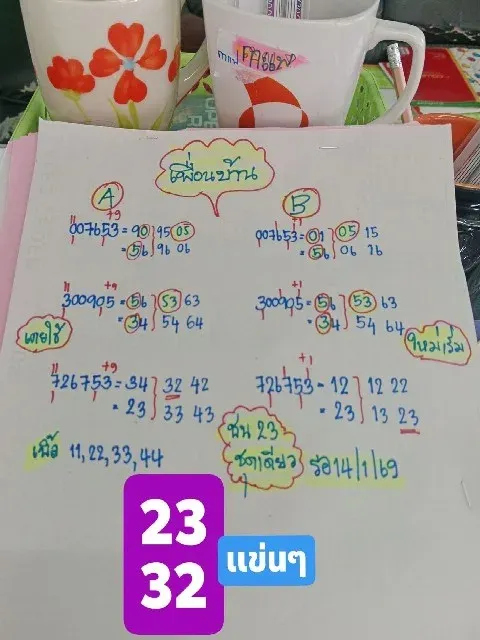 กาแฟ
เพื่อนบ้าน
A
B
+9
007653 = 90 } 95 05
= 56 } 96 06
+1
007653 = 01 } 05 15
= 56 } 06 16
+9
300905 = 56 } 53 63
= 34 } 54 64
+1
300905 = 56 } 53 63
= 34 } 54 64
เคยใช้
ใหม่เริ่ม
+9
726753 = 34 } 32 42
= 23 } 33 43
+1
726753 = 12 } 12 22
= 23 } 13 23
เผื่อ 11, 22, 33, 44
ชน 23
ชุดเดียว
รอ 14/1/69
23
32
แข่นๆ